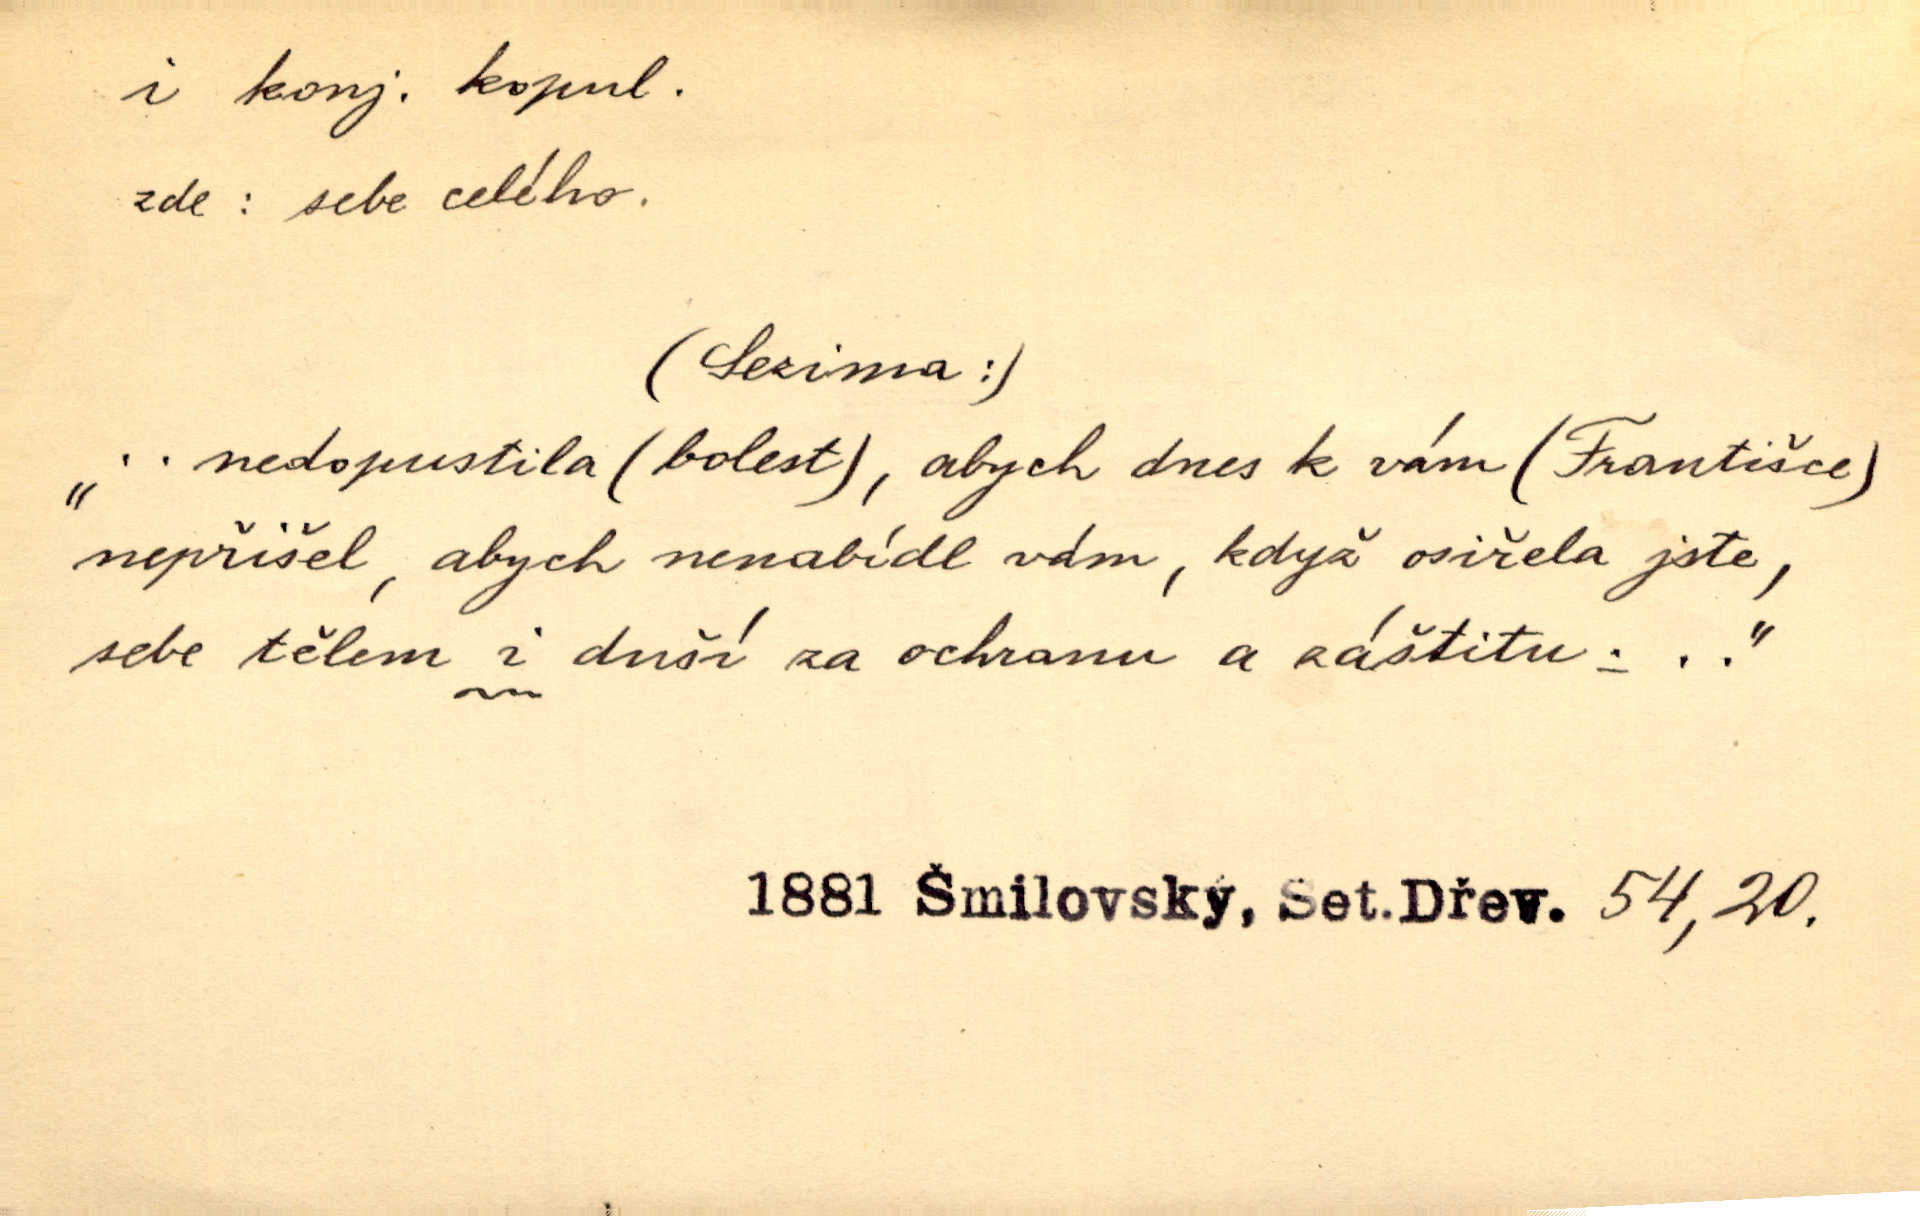 i konj. kopul.
zde : sebe celého.
(Sezima :)
„ . . nedopustila (bolest), abych dnes k vám (Františce)
nepřišel, abych nenabídl vám, když osiřela jste,
sebe tělem i duší za ochranu a záštitu . . .“
1881 Šmilovský, Set.Dřev. 54, 20.